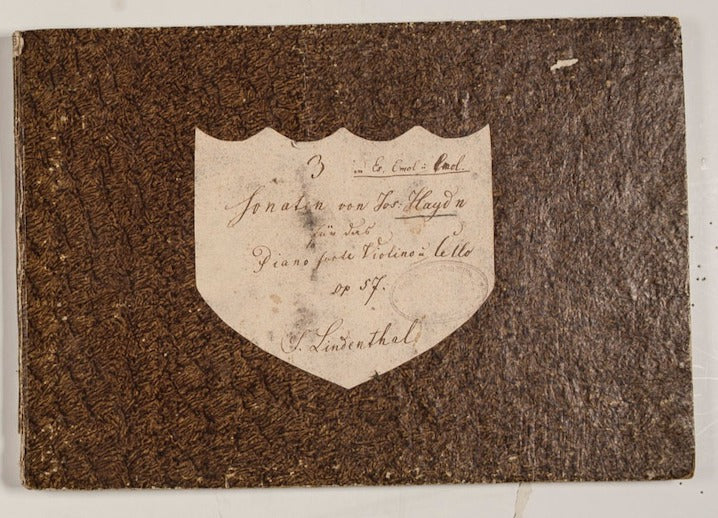 3 in Es, Emol u Cmol.
Sonaten von Jos: Haydn
für das
Piano forte Violino u Cello
op 57.
S. Lindenthal